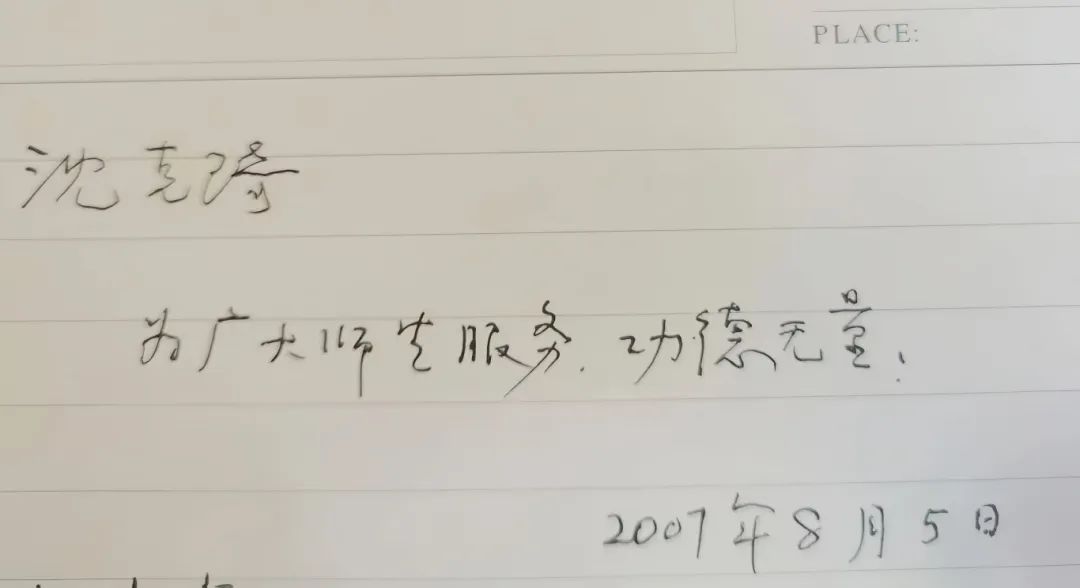 PLACE:
沈克
为广大师生服务.功德无量!
2007年8月5日